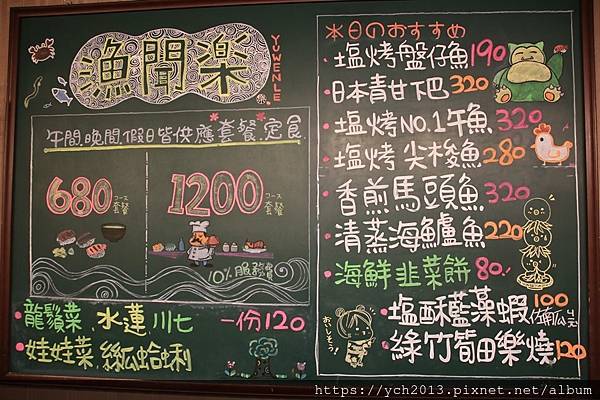 漁聞楽
YUWENLE
午間.晚間.假日皆供應套餐.定食
680 コース 套餐
1200 コース 套餐
10%服務費
龍鬚菜、水蓮 川七 一份120
娃娃菜、絲瓜蛤蜊
本日のおすすめ
塩烤盤仔魚190
日本青甘下巴320
塩烤NO.1午魚320
塩烤尖梭魚280
香煎馬頭魚320
清蒸海鱸魚220
海鮮韭菜餅80
塩酥藍藻蝦100
綠竹筍田樂燒120
おいしそう!
https://ych2013.pixnet.net/album